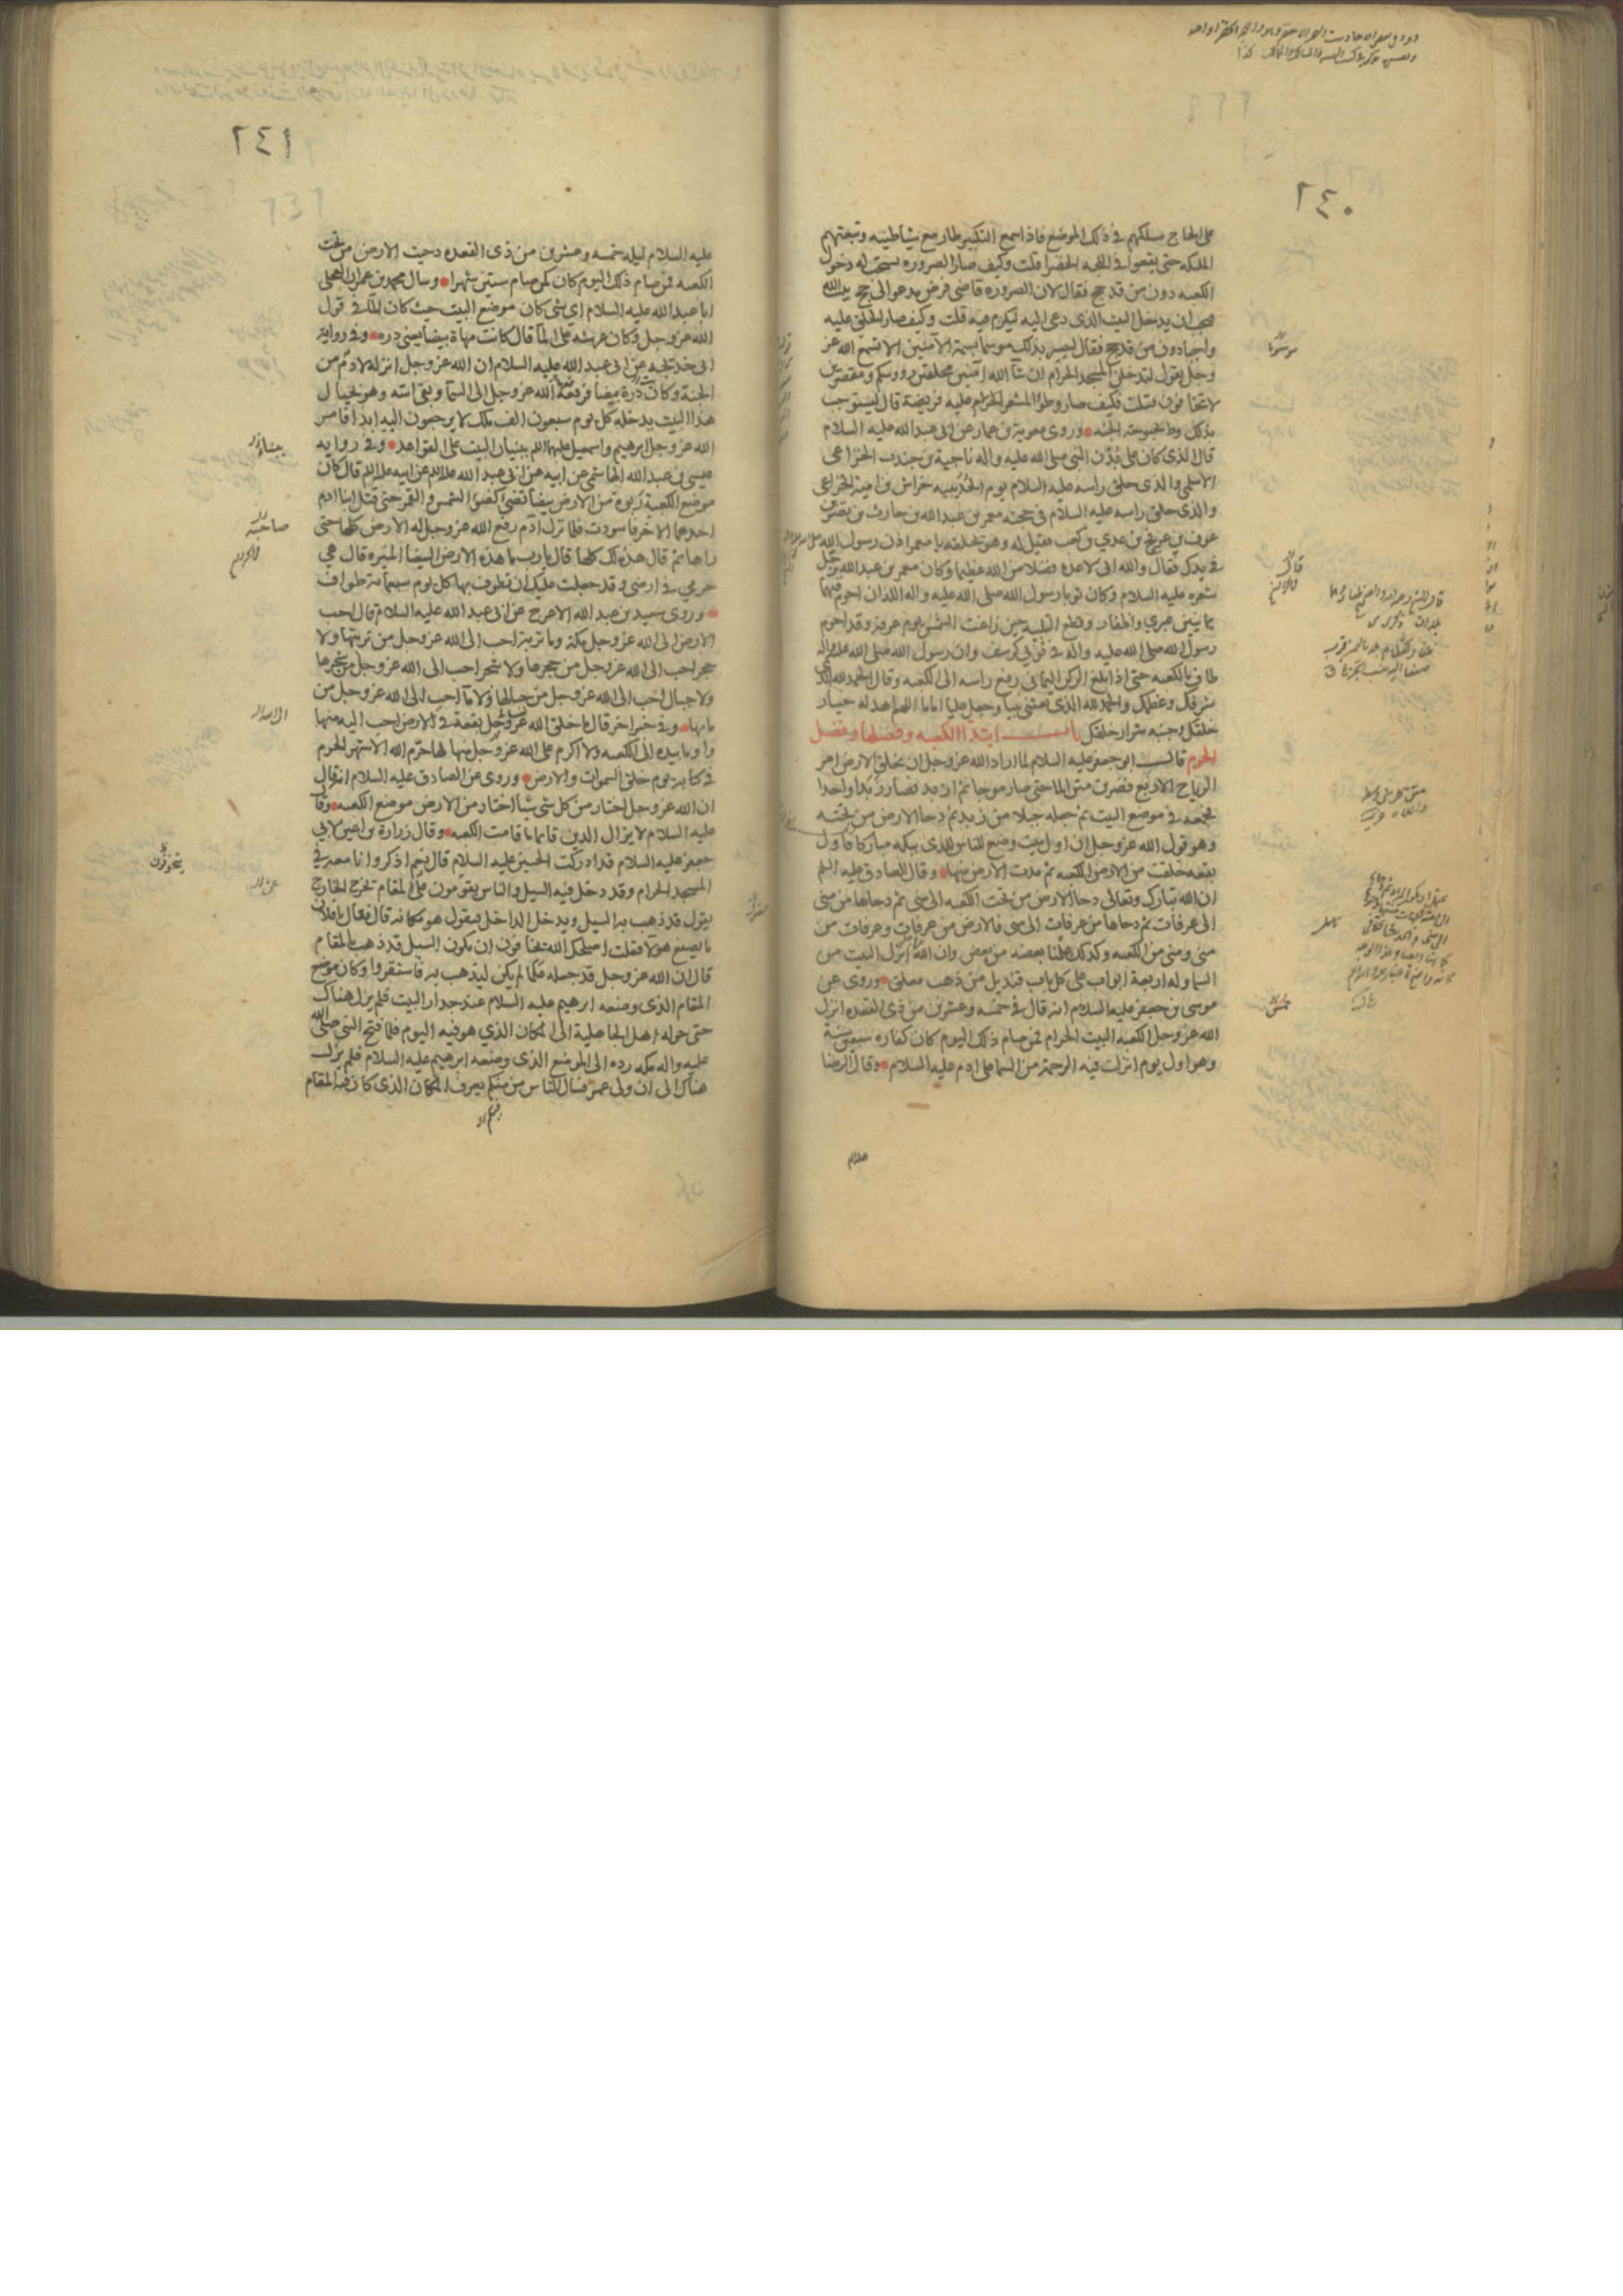 ٢٤٠
على الحاج مسلكهم في ذلك الموضع فاذا سمع التكبير طار مع شياطينه وتبعتهم
الملئكة حتى يقعوا في اللجة الخضرا قلت وكيف صار الصرورة يستحب له دخول
الكعبه دون من قد حج فقال لان الصرورة قاضي فرض مدعو الى حج بيت الله
فيجب ان يدخل البيت الذى دعى اليه ليكرم فيه قلت وكيف صار الحلق عليه
واجبا دون من قد حج فقال ليصير بذلك موسما بسمة الآمنين الا تسمع الله عز
وجل يقول لتدخلن المسجد الحرام ان شآ الله آمنين محلقين رووسكم ومقصرين
لا تخافون قلت فكيف صار وطؤ المشعر الحرام عليه فريضة قال ليستوجب
بذلك وطؤ بحبوحة الجنه وروى معوية بن عمار عن ابى عبد الله عليه السلام
قال الذى كان على بدن النبى صلى الله عليه واله ناجية بن جندب الخزاعى
الاسلمى والذى حلق راسه عليه السلام يوم الحديبيه خراش بن امية الخزاعى
والذى حلق راسه عليه السلام في حجته معمر بن عبد الله بن حارث بن نصر بن
عوف بن عويج بن عدي بن كعب فقيل له وهو يحلقه يا معمر اذن رسول الله
في يدك فقال والله انى لاعده فضلا من الله عظيما وكان معمر بن عبد الله يرحل
شعره عليه السلام وكان ثوبا رسول الله صلى الله عليه واله اللذان احرم فيهما
يمانيين عبري واظفار وقطع التلبيه حين زاغت الشمس يوم عرفه وقد احرم
رسول الله صلى الله عليه واله في ثوبي كرسف وان رسول الله صلى الله عليه واله
طاف بالكعبه حتى اذا بلغ الركن اليمانى رفع راسه الى الكعبه وقال الحمد لله الذى
شرفك وعظمك والحمد لله الذى بعثنى نبيا وجعل عليا اماما اللهم اهد له خيار
خلقك وجنبه شرار خلقك باب ابتدا الكعبه وفضلها وفضل
الحرم قال ابو جعفر عليه السلام لما اراد الله عز وجل ان يخلق الارض امر
الرياح الاربع فضربن متن الما حتى صار موجا ثم ازبد فصار زبدا واحدا
فجمعه في موضع البيت ثم جعله جبلا من زبد ثم دحا الارض من تحته
وهو قول الله عز وجل ان اول بيت وضع للناس للذى ببكة مباركا فاول
بقعه خلقت من الارض الكعبه ثم مدت الارض منها وقال الصادق عليه السلم
ان الله تبارك وتعالى دحا الارض من تحت الكعبه الى منى ثم دحاها من منى
الى عرفات ثم دحاها من عرفات الى منى فالارض من عرفات وعرفات من
منى ومنى من الكعبه وكذلك علمنا بعضه من بعض وان الله انزل البيت من
السما وله اربعة ابواب على كل باب قنديل من ذهب معلق وروى عن
موسى بن جعفر عليه السلام انه قال في خمسه وعشرين من ذى القعده انزل
الله عز وجل الكعبه البيت الحرام فمن صام ذلك اليوم كان كفارة سبعين سنة
وهو اول يوم انزلت فيه الرحمة من السما على ادم عليه السلام وقال الرضا
٢٤١
عليه السلام ليلة خمسه وعشرين من ذى القعده دحيت الارض من تحت
الكعبه فمن صام ذلك اليوم كان كمن صام ستين شهرا وسال محمد بن عمران العجلى
ابا عبد الله عليه السلام اي شى كان موضع البيت حيث كان الما في قول
الله عز وجل وكان عرشه على الما قال كانت مهاة بيضا يعنى درة وفي رواية
ابى خديجه عن ابى عبد الله عليه السلام ان الله عز وجل انزله لادم من
الجنة وكان درة بيضا فرفعه الله عز وجل الى السما وبقى اسه وهو بحيال
هذا البيت يدخله كل يوم سبعون الف ملك لا يرجعون اليه ابدا فامر
الله عز وجل ابرهيم واسمعيل عليهما السلم ببنيان البيت على القواعد وفي رواية
عيسى بن عبد الله الهاشمى عن ابيه عن ابى عبد الله عن ابيه قال كان
موضع الكعبة ربوة من الارض بيضا تضي كضو الشمس والقمر حتى قتل ابنا ادم
احدهما الاخر فاسودت فلما نزل ادم رفع الله عز وجل له الارض كلها حتى
راها ثم قال هذه لك كلها قال يا رب ما هذه الارض البيضا المنيره قال هي
حرمي في ارضى وقد جعلت عليك ان تطوف بها كل يوم سبعمائة طواف
وروى سعيد بن عبد الله الاعرج عن ابى عبد الله عليه السلام قال احب
الارض الى الله عز وجل مكة وما تربة احب الى الله عز وجل من تربتها ولا
حجر احب الى الله عز وجل من حجرها ولا شجر احب الى الله عز وجل من شجرها
ولا جبال احب الى الله عز وجل من جبالها ولا مآ احب الى الله عز وجل من
مائها وفي خبر اخر قال ما خلق الله عز وجل بقعة في الارض احب اليه منها
واومأ بيده الى الكعبه ولا اكرم على الله عز وجل منها لها حرم الله الاشهر الحرم
في كتابه يوم خلق السموات والارض وروى عن الصادق عليه السلام انه قال
ان الله عز وجل اختار من كل شى شيئا اختار من الارض موضع الكعبه وقال
عليه السلام لا يزال الدين قائما ما قامت الكعبه وقال زرارة بن اعين لابى
جعفر عليه السلام قد ادركت الحسين عليه السلام قال نعم اذكر وانا معه في
المسجد الحرام وقد دخل فيه السيل والناس يقومون على المقام يخرج الخارج
يقول قد ذهب به السيل ويدخل الداخل فيقول هو مكانه قال فقال يا فلان
ما يصنع هولا فقلت اصلحك الله يخافون ان يكون السيل قد ذهب بالمقام
قال ان الله عز وجل قد جعله علما لم يكن ليذهب به فاستقروا وكان موضع
المقام الذى وضعه ابرهيم عليه السلام عند جدار البيت فلم يزل هناك
حتى حوله اهل الجاهلية الى المكان الذي هو فيه اليوم فلما فتح النبى صلى الله
عليه واله مكه رده الى الموضع الذى وضعه ابرهيم عليه السلام فلم يزل
هناك الى ان ولى عمر فسال الناس من منكم يعرف المكان الذى كان فيه المقام